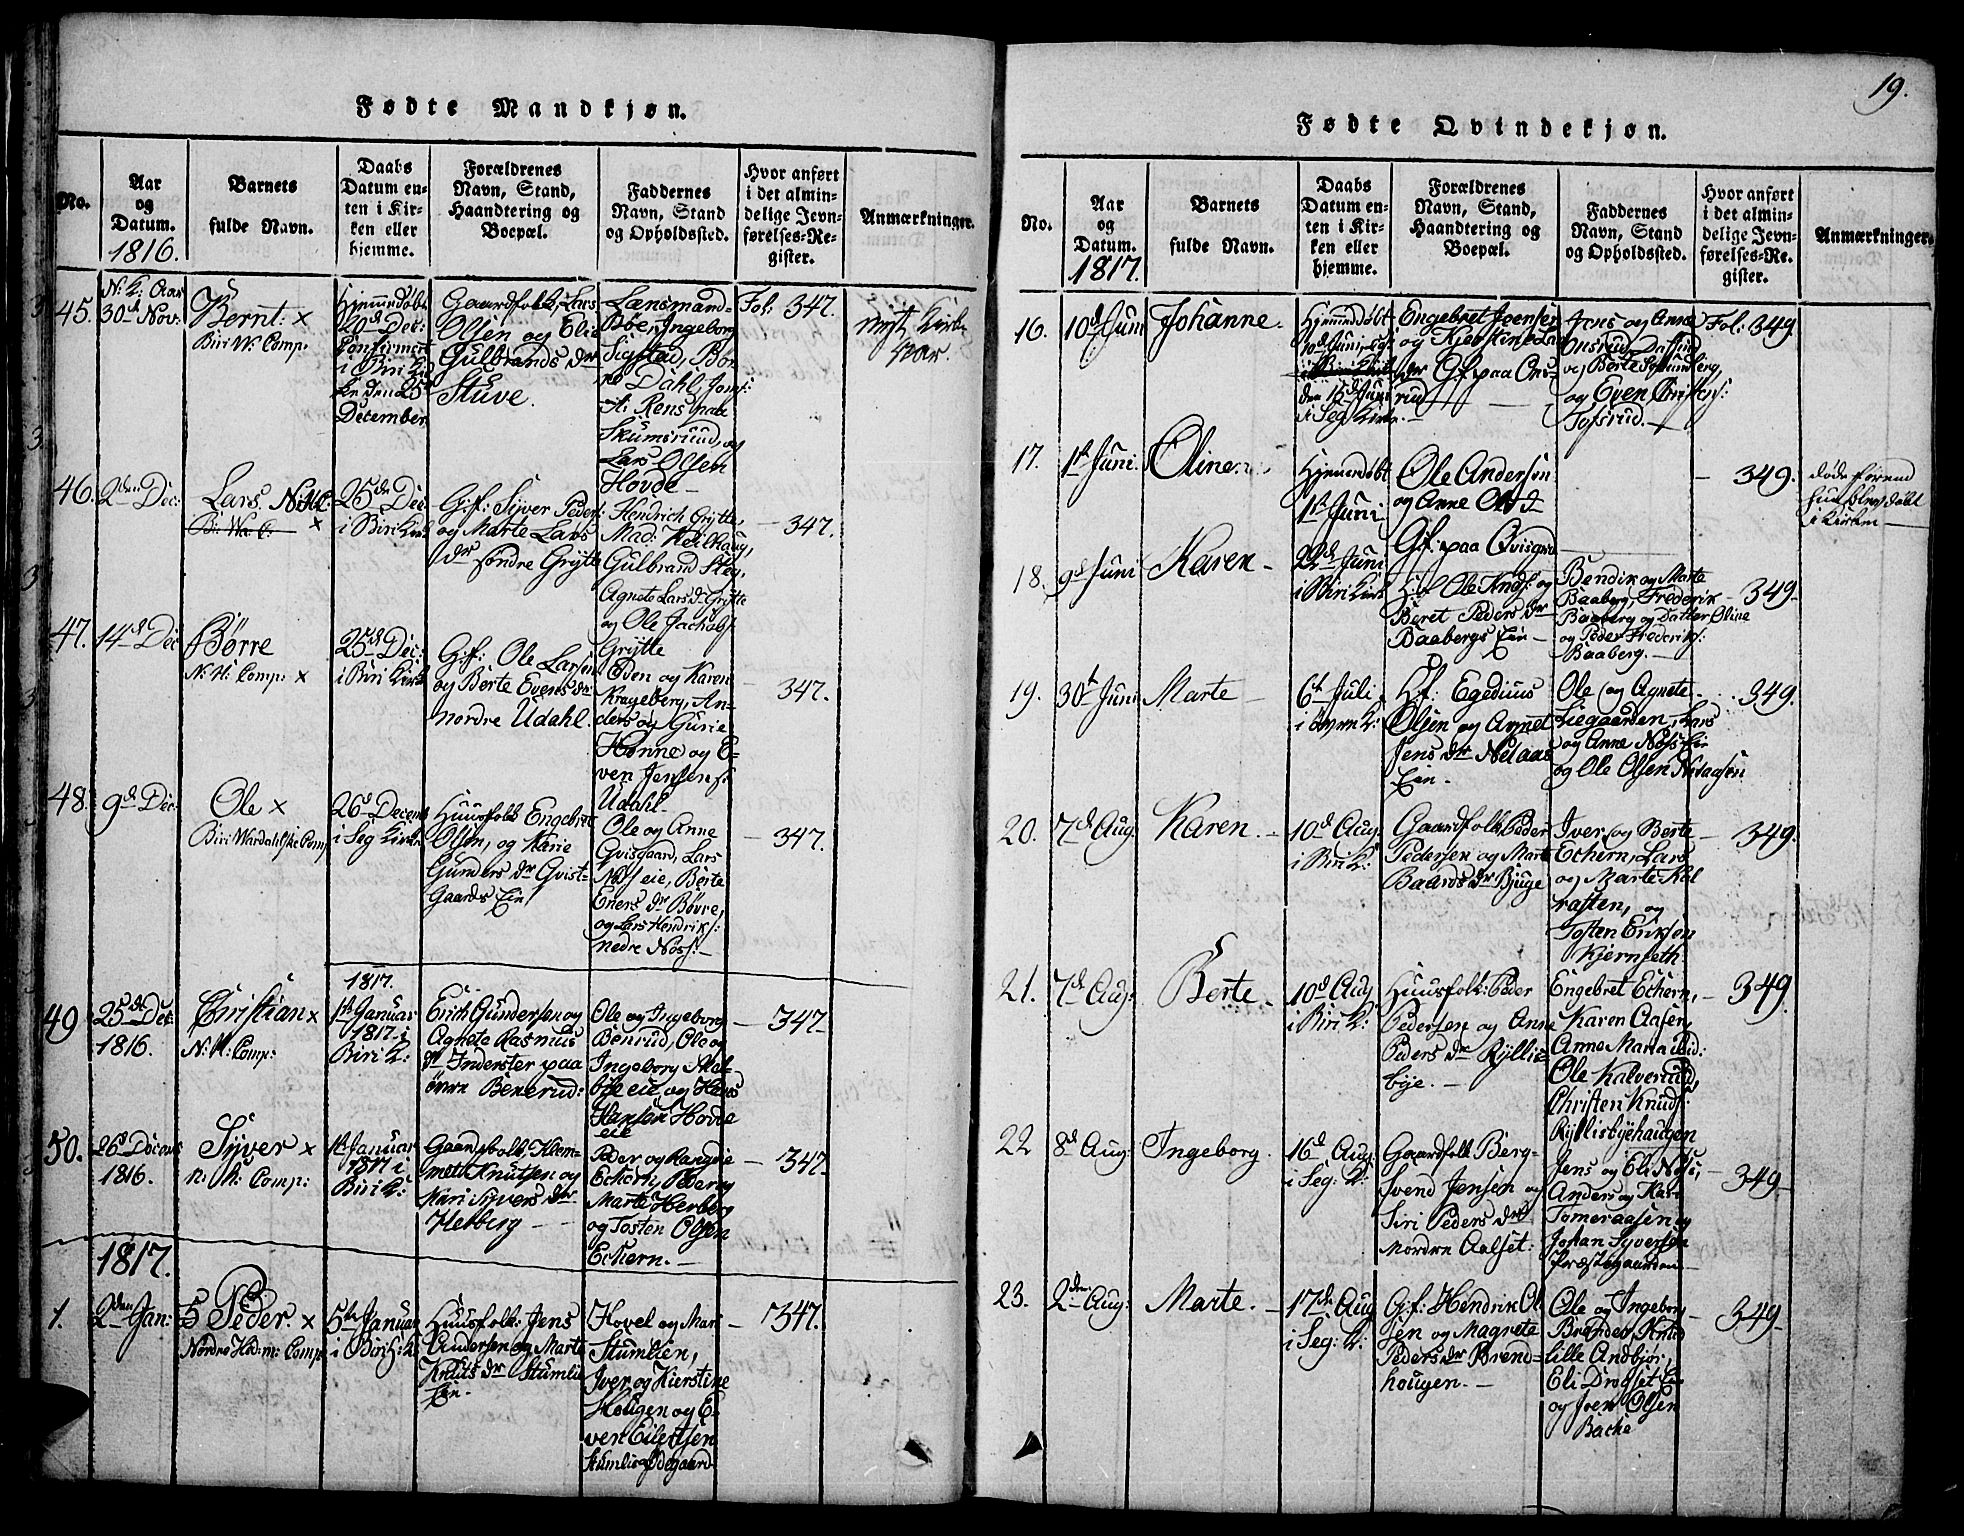 19.
Fødte Mandkjøn.
No.
Aar
og
Datum.
1816.
Barnets
fulde Navn.
Daabs
Datum en-
ten i Kir-
ken eller
hjemme.
Forældrenes
Navn, Stand,
Haandtering og
Boepæl.
Faddernes
Navn, Stand
og Opholdssted.
Hvor anført
i det almin-
delige Jevn-
førelses-Re-
gister.
Anmærkninger.
45.
30d Nov:
Bernt: ×
Biri W: Comp:
Hjemmedøbt
20d Dec:
Confirmert
i Biri Kir
ke den 25d
December
Gaardfolk, Lars
Olsen og Elie
Gulbrands dr
Stuve.
Lænsmand
Böe, Ingeborg
Sigstad,
Dahl,
Rens paa
Skumsruud, og
Lars Olsen
Hovde
Fol: 347.
46.
2den Dec:
Lars.
×
25de Dec
i Biri Kirk
G:f: Siver Peder
og Marte Lars
dr söndre Grytte
Hendrich Grytte,
Mad: Keilhaug,
Gulbrand Steg,
Agnete Lars dr Grytte
og Ole Jachobs:
Grytte
347.
47.
14d Dec
Börre
N: H: Comp: ×
25d Dec:
i Biri Kirk
G:f: Ole Larsen
og Berte Evens dr
nordre Udahl.
Eden og Karen
Krageberg, An-
ders og Gurie
Hönne og E-
ven Jensen
Udahl
347.
48.
9d Dec:
Ole ×
Biri: Wardahlske Comp
26d Decemb
i Seg Kirk
Huusfolk Engebret
Olsen, og Marie
Gunders dr Qvist-
Gaards Ein
Ole og Anne
Qvisgaard, Lars
Næss eie, Berte
Eners dr Bövre,
og Lars Hendrik:
nedre Nöss:
347.
49
25de Dec:
1816.
Christian ×
N: H: Comp:
1817.
1st Januar
1817 i
Biri K:
Erich Gundersen og
Agnete Rasmus
dr Inderster paa
öwre Benerud:
Ole og Ingeborg
Benrud, Ole og
Ingeborg
bye eie, og Hans
Hansen Hovde
eie
347
50.
26d Decemb
1816.
Syver ×
n: H: Comp:
1st Januar
1817 i
Biri K:
Gaardfolk Klem-
mett Knutsen og
Mari Syvers dr
Helberg
Peder og Rangnie
Echern, Peder og
Marte Herberg
og Tosten Olsen
Echern.
347
1817.
1.
2den Jan:
Peder ×
Nordre Hed: m: Comp
5te Januar
i Biri K:
Huusfolk: Jens
Andersen og Marte
Knuts dr Stumlie
Ein.
Hovel og Mar
Stumlien,
Iver og Kierstine
Hougen og E-
ven Eilertsen
Stumlie Ödegaard
347.
Fødte Qvindekjøn.
No.
Aar
og
Datum.
1817.
Barnets
fulde Navn.
Daabs
Datum en-
ten i Kir-
ken eller
hjemme.
Forældrenes
Navn, Stand,
Haandtering og
Boepæl.
Faddernes
Navn, Stand
og Opholdssted.
Hvor anført
i det almin-
delige Jevn-
førelses-Re-
gister.
Anmærkninger.
16.
10d Juni
Johanne.
Hjemmedöbt
10d Juni
den 15d Juni
i Seg Kirk.
Engebret Joensen
og Kjerstine Lars
dr G:f: paa Ons-
rud
Jens og Anne
Onsrud,
Berte
og Even Christens:
Tofsrud.
Fol: 349.
17.
1st Juni.
Oline
Hjemmedöbt
1st Juni
Ole Andersen
og Anne
G:f: paa Qvisgrd
349.
döde förend
hun blev döbt
i Kirken
18.
9d Juni
Karen
22d Juni
i Biri Kirk
H:f: Ole Knds: og
Beret Peders dr
Baabergs Ein
Bendik og Marte
Baaberg, Frederik
Baaberg og Datter Oline
og Peder Frederiks:
Baaberg.
349
19.
30t Juni
Marte
6t Juli
i K:
H:f: Egedius
Olsen og Annet
Jens dr Nelaas
Ein.
Ole og Agnete
Liegaarden, Lars
og Anne Nöss Ein
og Ole Olsen Nelaasen
349.
20.
7d Aug
Karen.
10d Aug
i Biri K:
Gaardfolk Peder
Pedersen og Marte
Baards dr Bjuge
Iver og Berte
Echern, Lars
og Marte Kal
rasten, og
Tosten Eriksen
Kjernseth.
349.
21.
7d Aug:
Berte.
10d Aug
i Biri K:
Huusfolk: Peder
Pedersen og Anne
Peders dr Ryllis
bye.
Engebret Echern,
Karen Aasen,
Anne Maria ibid:
Ole Kalverud,
Christen Knuds:
Ryllisbyehaugen
349.
22
8d Aug:
Ingeborg.
16d Aug:
i Seg: K:
Gaardfolk Berg-
Svend Jensen og
Siri Peders dr
Nordre Aalset:
Jens og Eli Nöss,
Anders og Kari
Tömeraasen og
Johan Syversen
Præstegaarden
349
23.
2den Aug:
Marte.
17de Aug
i Seg: K:
G:f: Hendrik Ol
sen og Magnete
Peders dr Brend-
hougen.
Ole og Ingeborg
Brenden, Knud
lille Andbjör,
Eli Drogset Ein
og Joen Olsen
Bache
349